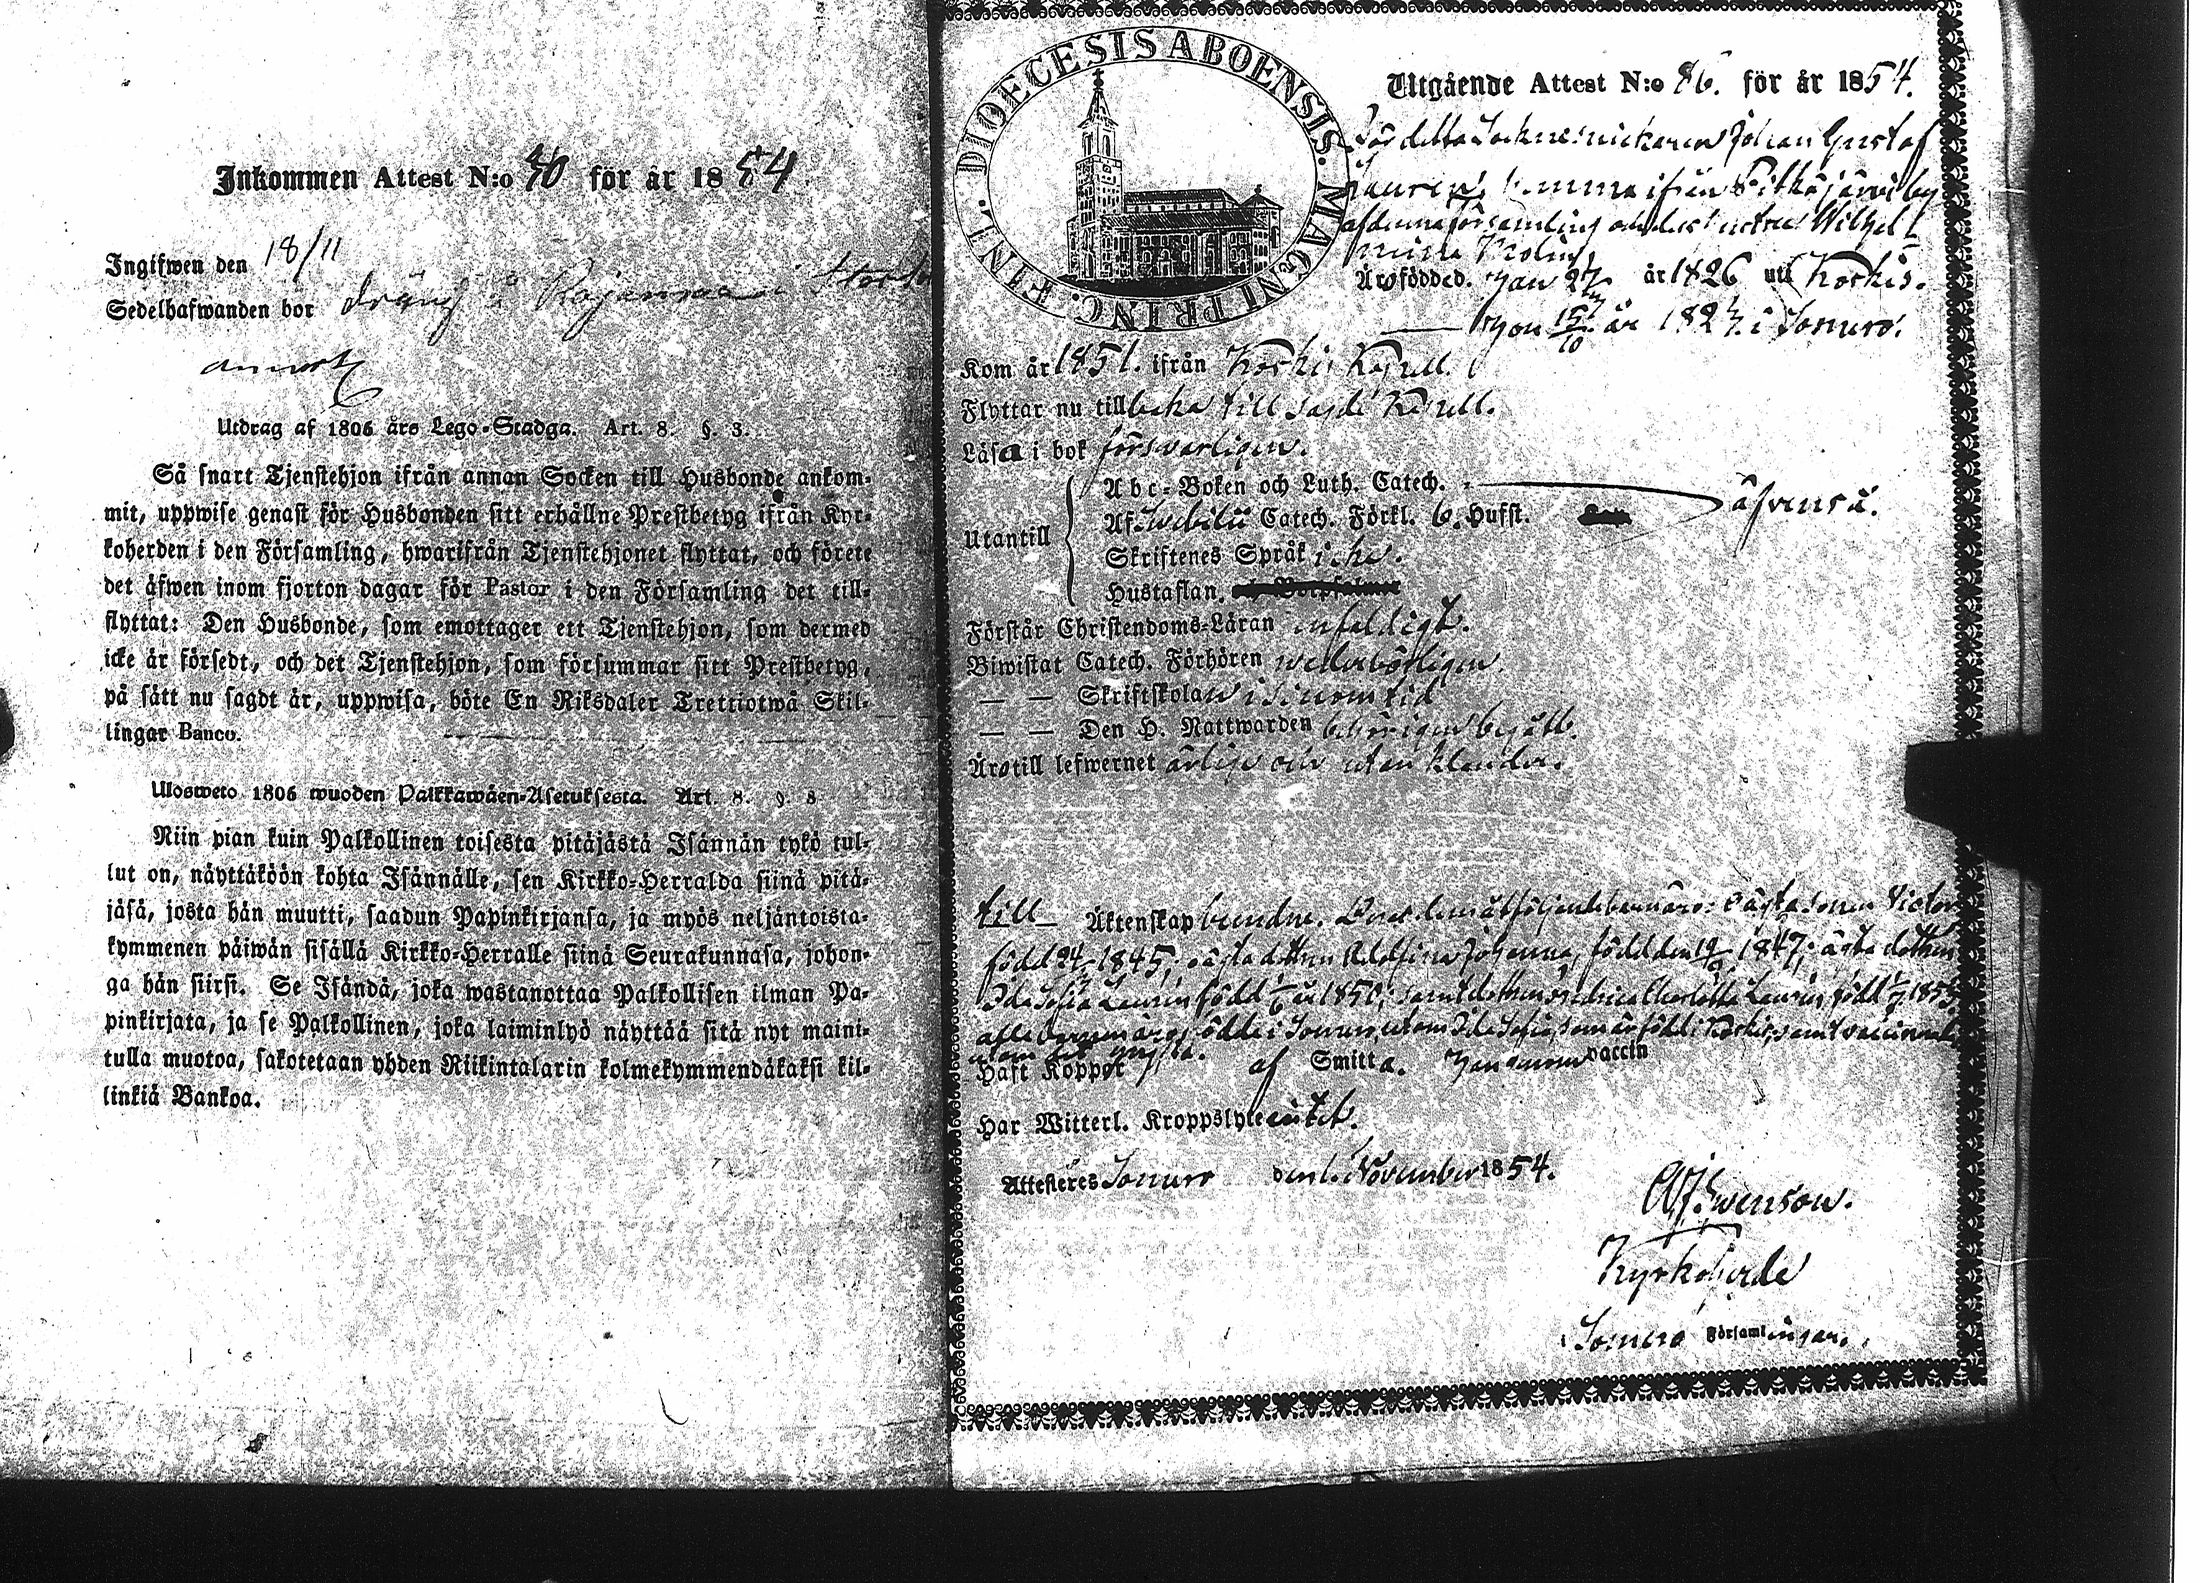 Inkommen Attest N:o 30 för år 1854
Ingifwen den 18/11
Sedelhafwanden bor dräng i
Utdrag af 1806 års Lego-Stadga. Art. 8. §. 3.
Så snart Tjenstehjon ifrån annan Socken till Husbonde ankom-
mit, uppwise genast för Husbonden sitt erhållne Prestbetyg ifrån Kyr-
koherden i den Församling, hwarifrån Tjenstehjonet flyttat, och förete
det äfwen inom fjorton dagar för Pastor i den Församling det till-
flyttat: Den Husbonde, som emottager ett Tjenstehjon, som dermed
icke är försedt, och det Tjenstehjon, som försummar sitt Prestbetyg,
på sätt nu sagdt är, uppwisa, böte En Riksdaler Trettiotwå Skil-
lingar Banco.
Ulosweto 1806 wuoden Palkkawäen-Asetuksesta. Art. 8. §. 3
Niin pian kuin Palkollinen toisesta pitäjästä Isännän tykö tul-
lut on, näyttäköön kohta Isännälle, sen Kirkko-Herralda siinä pitä-
jäsä, josta hän muutti, saadun Papinkirjansa, ja myös neljäntoista-
kymmenen päiwän sisällä Kirkko-Herralle siinä Seurakunnasa, johon-
ga hän siirsi. Se Isändä, joka wastanottaa Palkollisen ilman Pa-
pinkirjata, ja se Palkollinen, joka laiminlyö näyttää sitä nyt maini-
tulla muotoa, sakotetaan yhden Riikintalarin kolmekymmendäkaksi kil-
linkiä Bankoa.
DIOECESIS ABOENSIS. MAGNI PRINC. FINL.
Utgående Attest N:o 86. för år 1854.
Johan Gustaf
Laurin, ifrån Pitkäjärwi by
af denna församling och dess hustru Wilhel-
mina
Äro födde d. Han år 1826 uti Koskis.
Hon 15/10 år 1824 i Somero.
Kom år 1851. ifrån Koskis Kapell.
Flyttar nu tillbaka till sagde Kapell.
Läsa i bok förswarligen.
Utantill
Abc-Boken och Luth. Catech.
Af Swebilii Catech. Förkl. 6. Hufst. äfwenså.
Skriftenes Språk icke.
Hustaflan.
Förstår Christendoms-Läran enfaldigt.
Biwistat Catech. Förhören wederbörligen.
— — Skriftskolan i sinom tid
— — Den H. Nattwarden behörigen begått.
Äro till lefwernet ärlige och utan klander.
till Äktenskap bundne. Deras barn äro: ägta sonen Victor
född 24/ 1845; ägta dottren Adolfina Johanna, född den 19/ 1847; ägta dottren
Ida Sofia Laurin född år 1850; samt dottren Fredrica Charlotta Laurin född 1853,
alla barnen äro födde i Somero, utom Ida Sofia, som är född i Koskis; samt vaccinerade
utom det yngsta.
Haft Koppor af Smitta. Hon genom vaccin
Har Witterl. Kroppslyte intet.
Attesteres Somero den 6. November 1854.
Swenson.
Kyrkoherde
i Somero Församlingar.